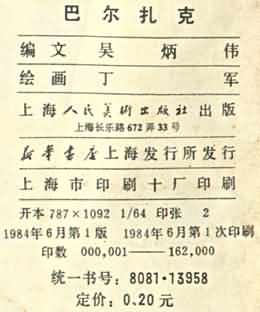 巴尔扎克
编文 吴炳伟
绘画 丁军
上海人民美术出版社出版
上海长乐路672弄33号
新华书店上海发行所发行
上海市印刷十厂印刷
开本 787×1092 1/64 印张 2
1984年6月第1版 1984年6月第1次印刷
印数 000,001——162,000
统一书号：8081·13958
定价：0.20元